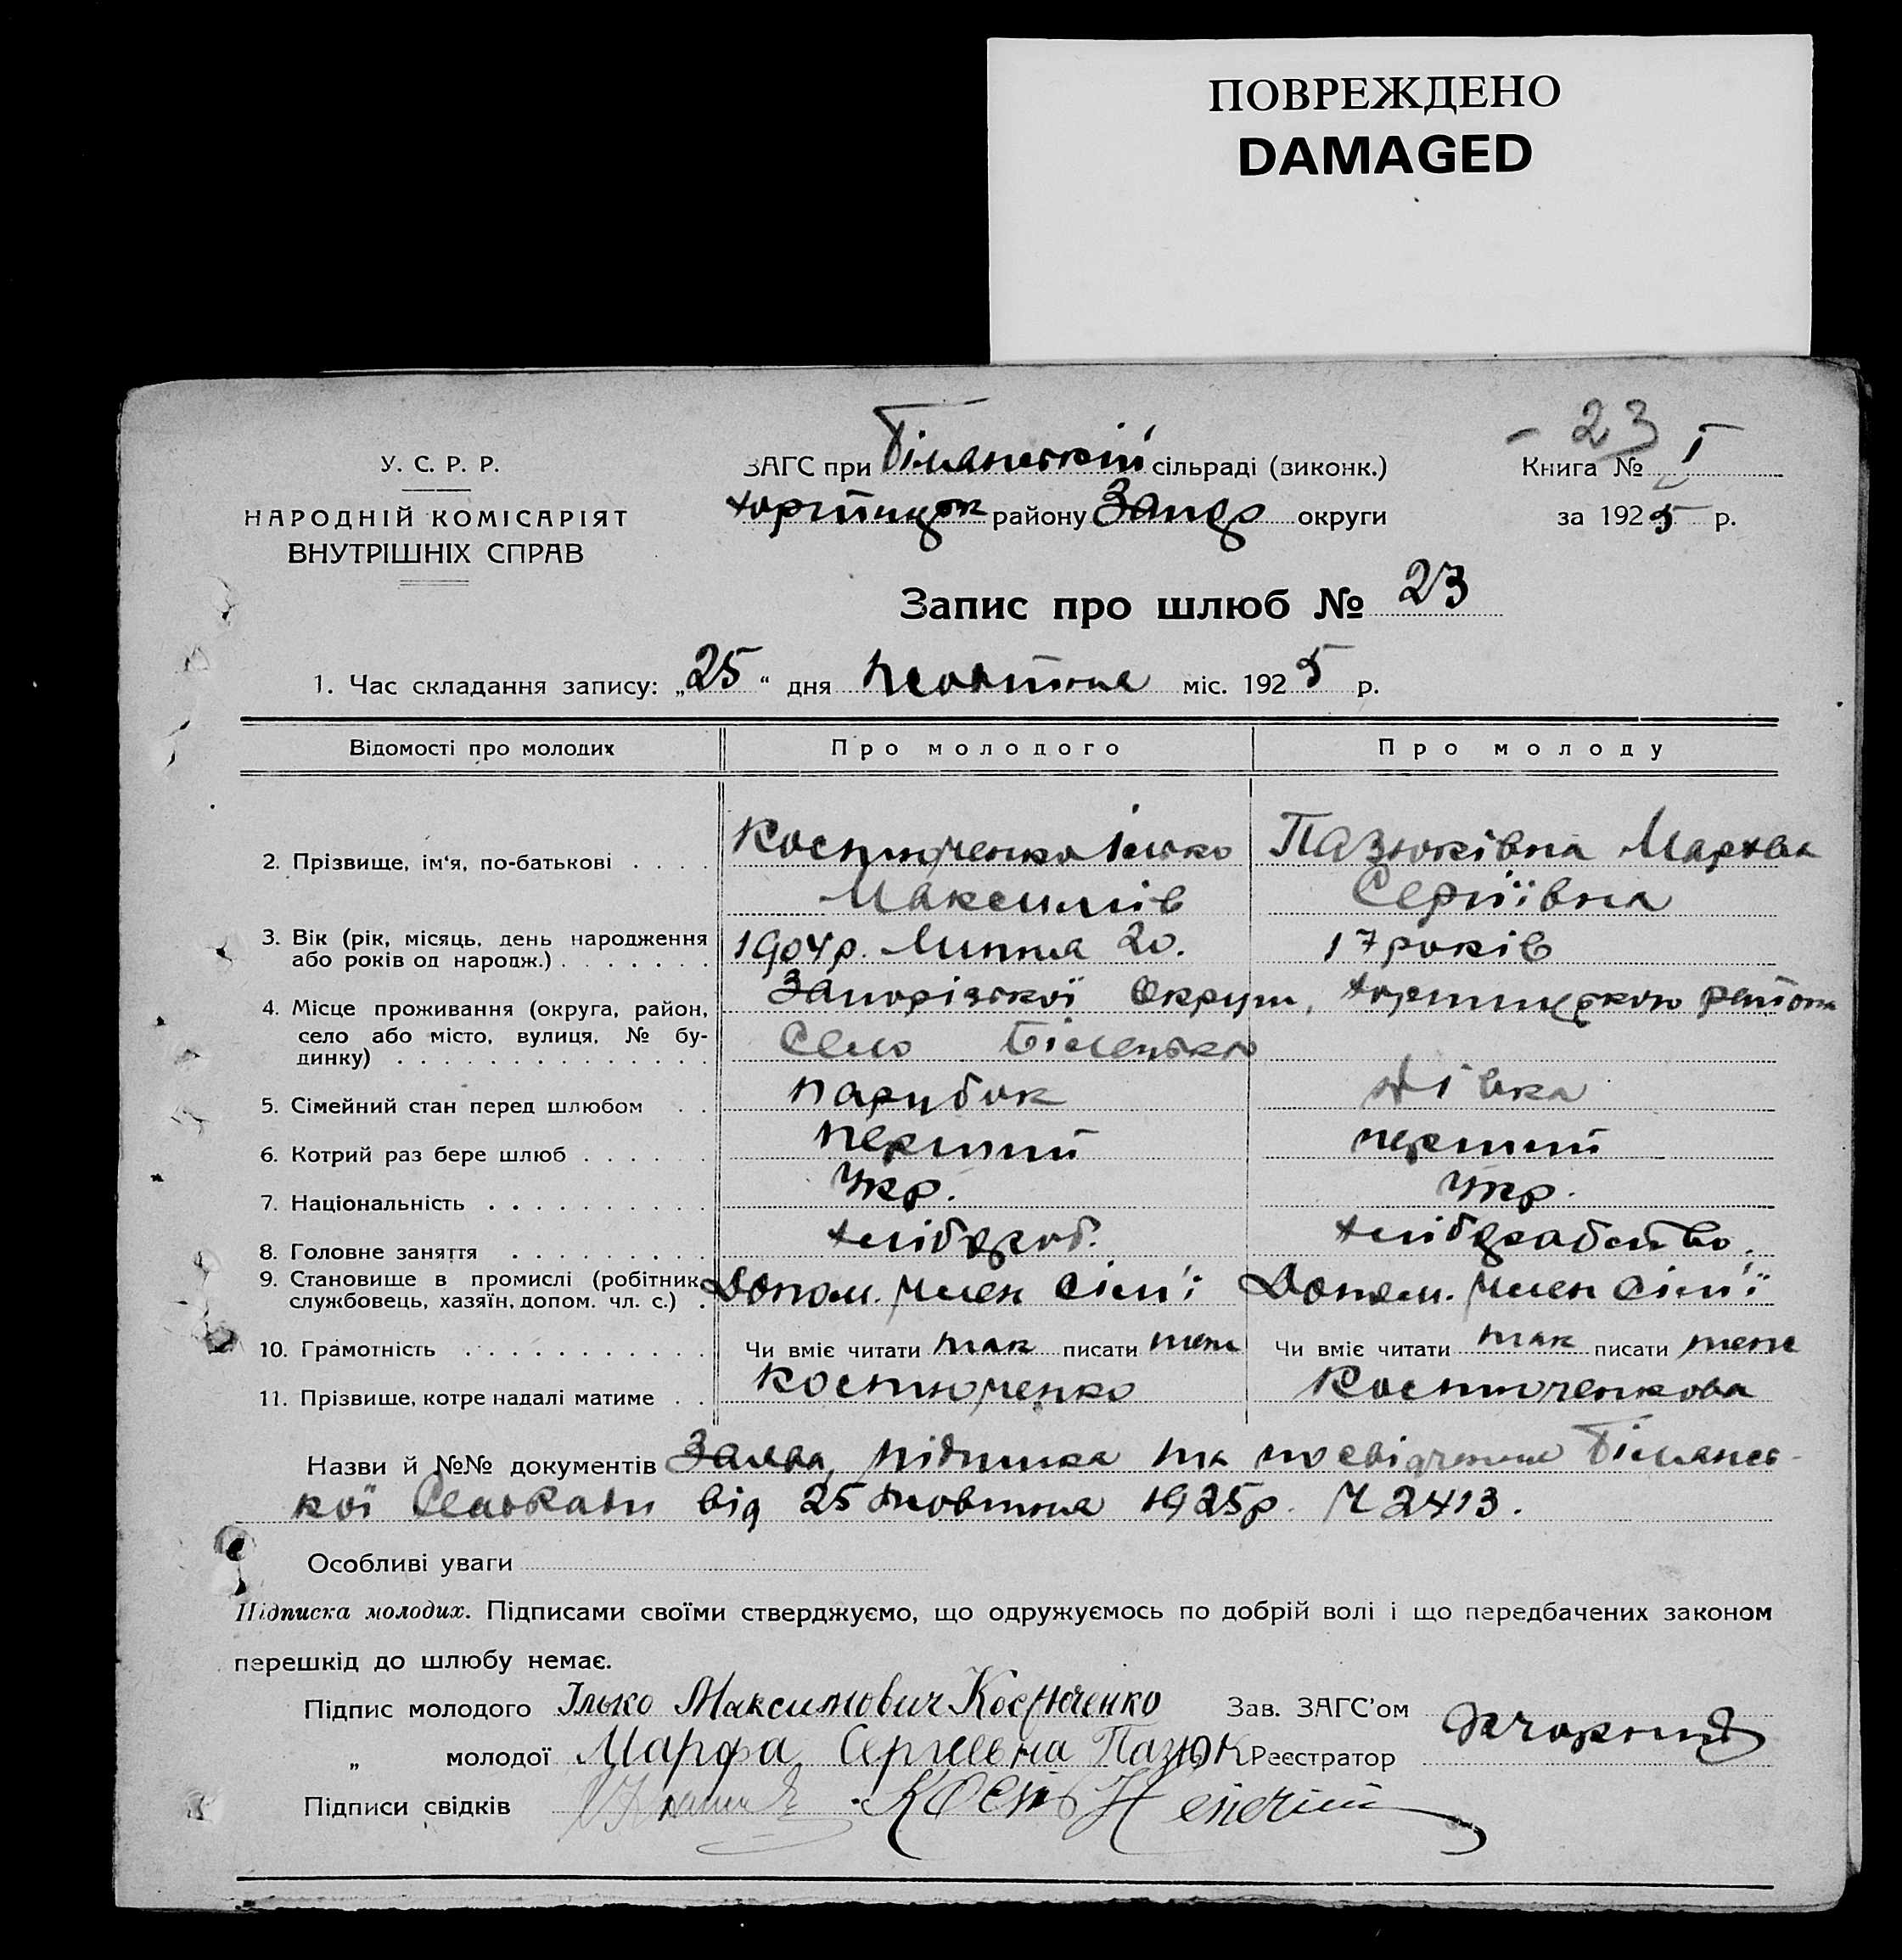 ПОВРЕЖДЕНО
DAMAGED
- 23
У. С. Р. Р.
НАРОДНІЙ КОМІСАРІЯТ
ВНУТРІШНІХ СПРАВ
ЗАГС при Біланській сільраді (виконк.)
Хортицьк району Запор округи
Книга № I
за 1925 р.
Запис про шлюб № 23
1. Час складання запису: „25“ дня жовтня міс. 1925 р.
Відомості про молодих Про молодого Про молоду
2. Прізвище, ім‘я, по-батькові . . . . Костюченко Ілько Пазюківна Мархва
Максимів Сергіївна
3. Вік (рік, місяць, день народження 1904 р. Липня 20. 17 років
або років од народж.) . . . . . . .
4. Місце проживання (округа, район, Запорізької Округи, Хортицького району
село або місто, вулиця, № бу- Село Біленьке
динку) . . . . . . . . . . . . . .
5. Сімейний стан перед шлюбом . . парубок дівка
6. Котрий раз бере шлюб . . . . . . перший перший
7. Національність . . . . . . . . . . Укр. Укр.
8. Головне заняття . . . . . . . . . хлібороб. хлібдрабство.
9. Становище в промислі (робітник, Допом. член сім'ї Допом. член сім'ї
службовець, хазяїн, допом. чл. с.) .
10. Грамотність . . . . . . . . . . . Чи вміє читати так писати теж Чи вміє читати так писати теж
11. Прізвище, котре надалі матиме . . Костюченко Костюченкова
Назви й №№ документів Заява, підписка та посвідчення Білансь-
кої Сельради від 25 жовтня 1925 р. Ч 2413.
Особливі уваги
Підписка молодих. Підписами своїми стверджуємо, що одружуємось по добрій волі і що передбачених законом
перешкід до шлюбу немає.
Підпис молодого Ілько Максимович Костюченко Зав. ЗАГС’ом
„ молодої Марфа Сергиевна Пазюк Реєстратор
Підписи свідків Кость